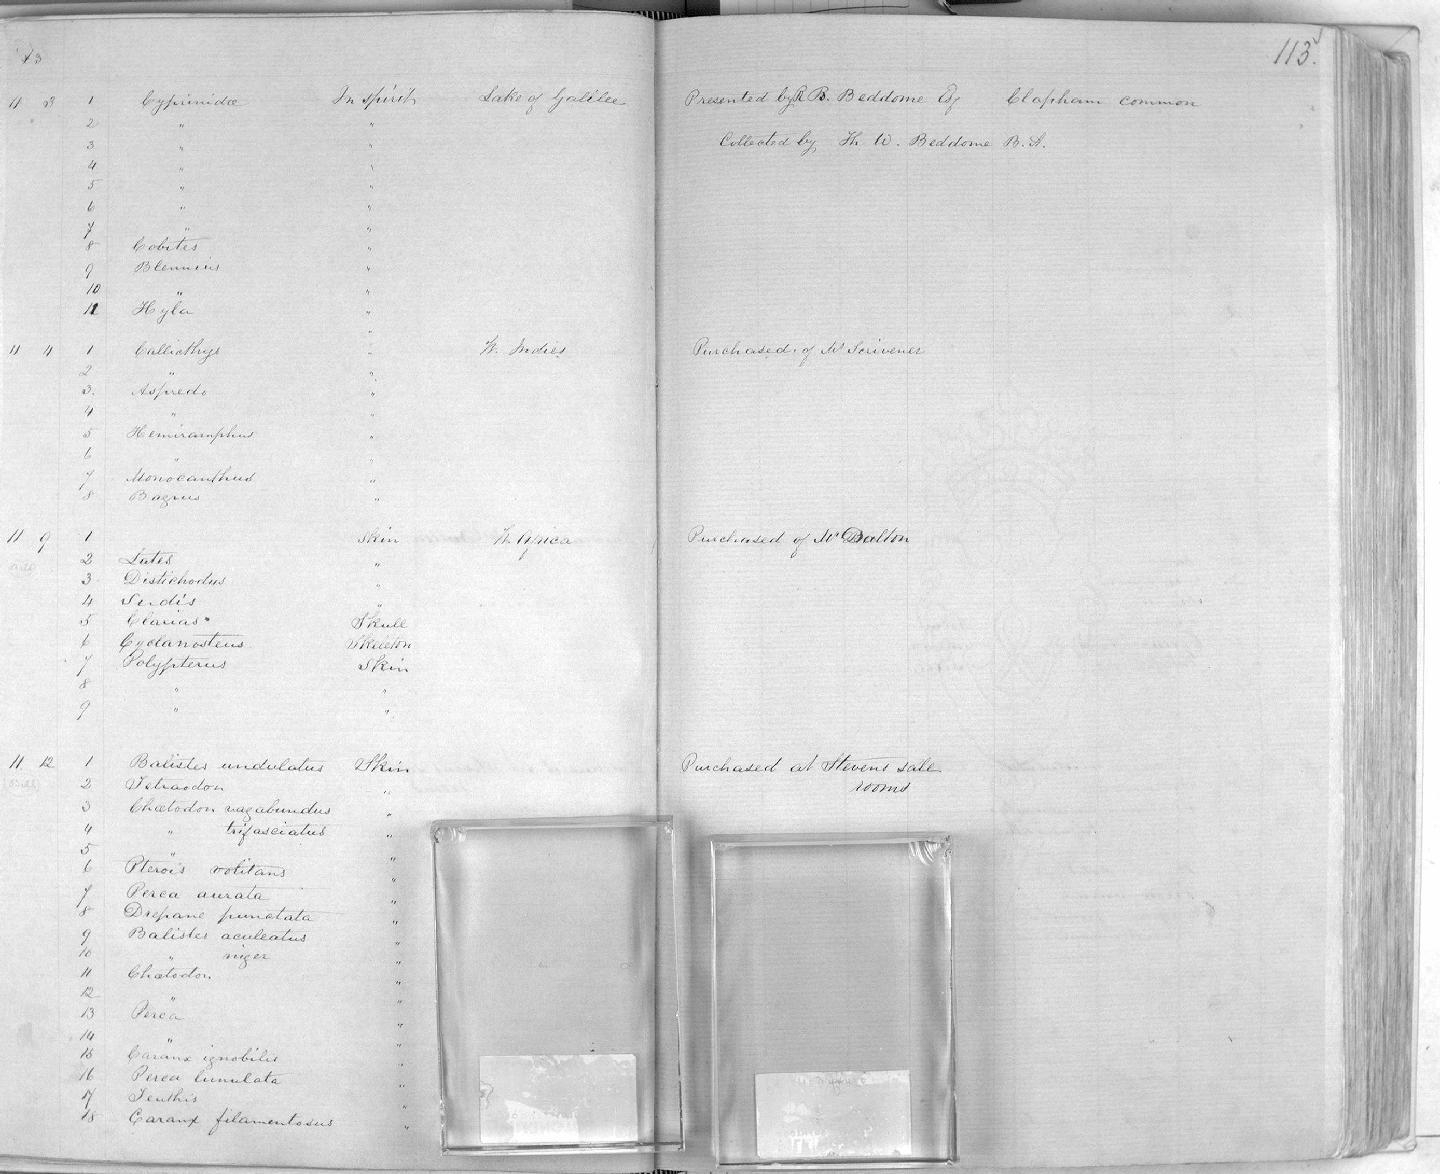 113.
11 3 1 Cyprinidæ In spirit Lake of Galilee Presented by R B. Beddome Esq Clapham common
2 " "
3 " " Collected by Th W. Beddome B.A.
4 " "
5 " "
6 " "
7 " "
8 Cobites "
9 Blennius "
10 " "
11 Hyla "
11 4 1 Callicthys " W. Indies Purchased of Mr Scrivener
2 " "
3. Aspredo "
4 " "
5 Hemiramphus "
6 " "
7 Monocanthus "
8 Bagrus "
11 9 1 Skin W. Africa Purchased of Mr Dalton
2 Lates "
3 Distichodus "
4 "
5 Clarias Skull
6 Cyclanosteus Skeleton
7 Polypterus Skin
8 " "
9 " "
11 12 1 Balistes undulatus Skin Purchased at Stevens sale
2 Tetraodon " rooms
3 Chætodon vagabundus "
4 " trifasciatus "
5 " "
6 Pterois volitans "
7 Perca aurata "
8 Drepane punctata "
9 Balistes aculeatus "
10 " niger "
11 Chætodon "
12 " "
13 Perca "
14 " "
15 Caranx ignobilis "
16 Perca lunulata "
17 Teuthis "
18 Caranx filamentosus "